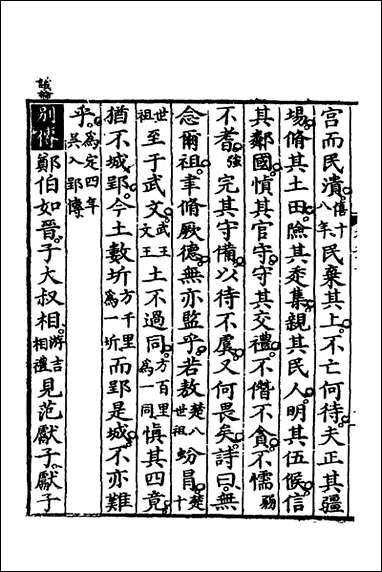 議論
宮而民潰。僖十八年民棄其上。不亡何待。夫正其疆
場。脩其土田。險其走集。親其民人。明其伍候。信
其鄰國。慎其官守。守其交禮。不僭不貪。不懦弱
不耆。強完其守備。以待不虞。又何畏矣。詩曰。無
念爾祖。聿脩厥德。無亦監乎。若敖楚八世祖蚡冒楚十
世祖至于武文。武王文王土不過同。方百里為一同慎其四竟。
猶不城郢。今土數圻方千里為一圻而郢是城。不亦難
乎。為定四年吳入郢傳
別傳鄭伯如晉。子大叔相。游吉相禮見范獻子。獻子